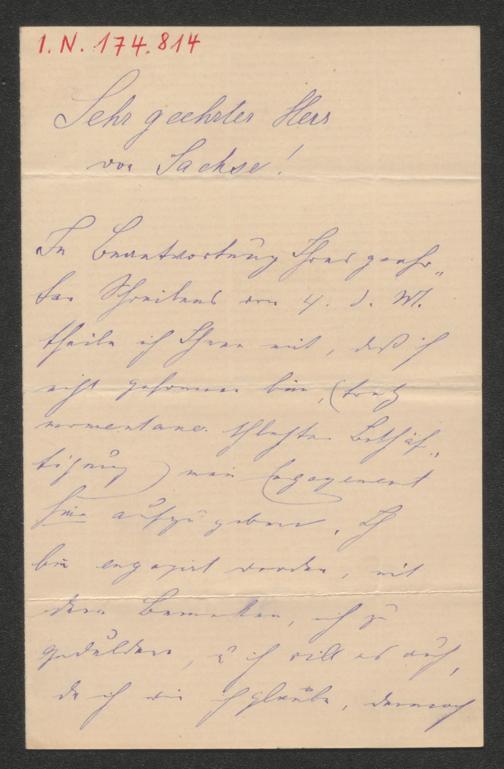 I. N. 174.814
Sehr geehrter Herr
von Sachse!
In Beantwortung Ihres geehr„
ten Schreibens vom 4. d. M.
theile ich Ihnen mit, daß ich
nicht gesonnen bin, (trotz
momentaner schlechter Beschäf„
tigung) mein Engagement
hier aufzugeben. Ich
bin engagirt worden, mit
dem Bemerken, mich zu
gedulden, u ich will es auch,
da ich wie ich glaube, dennoch